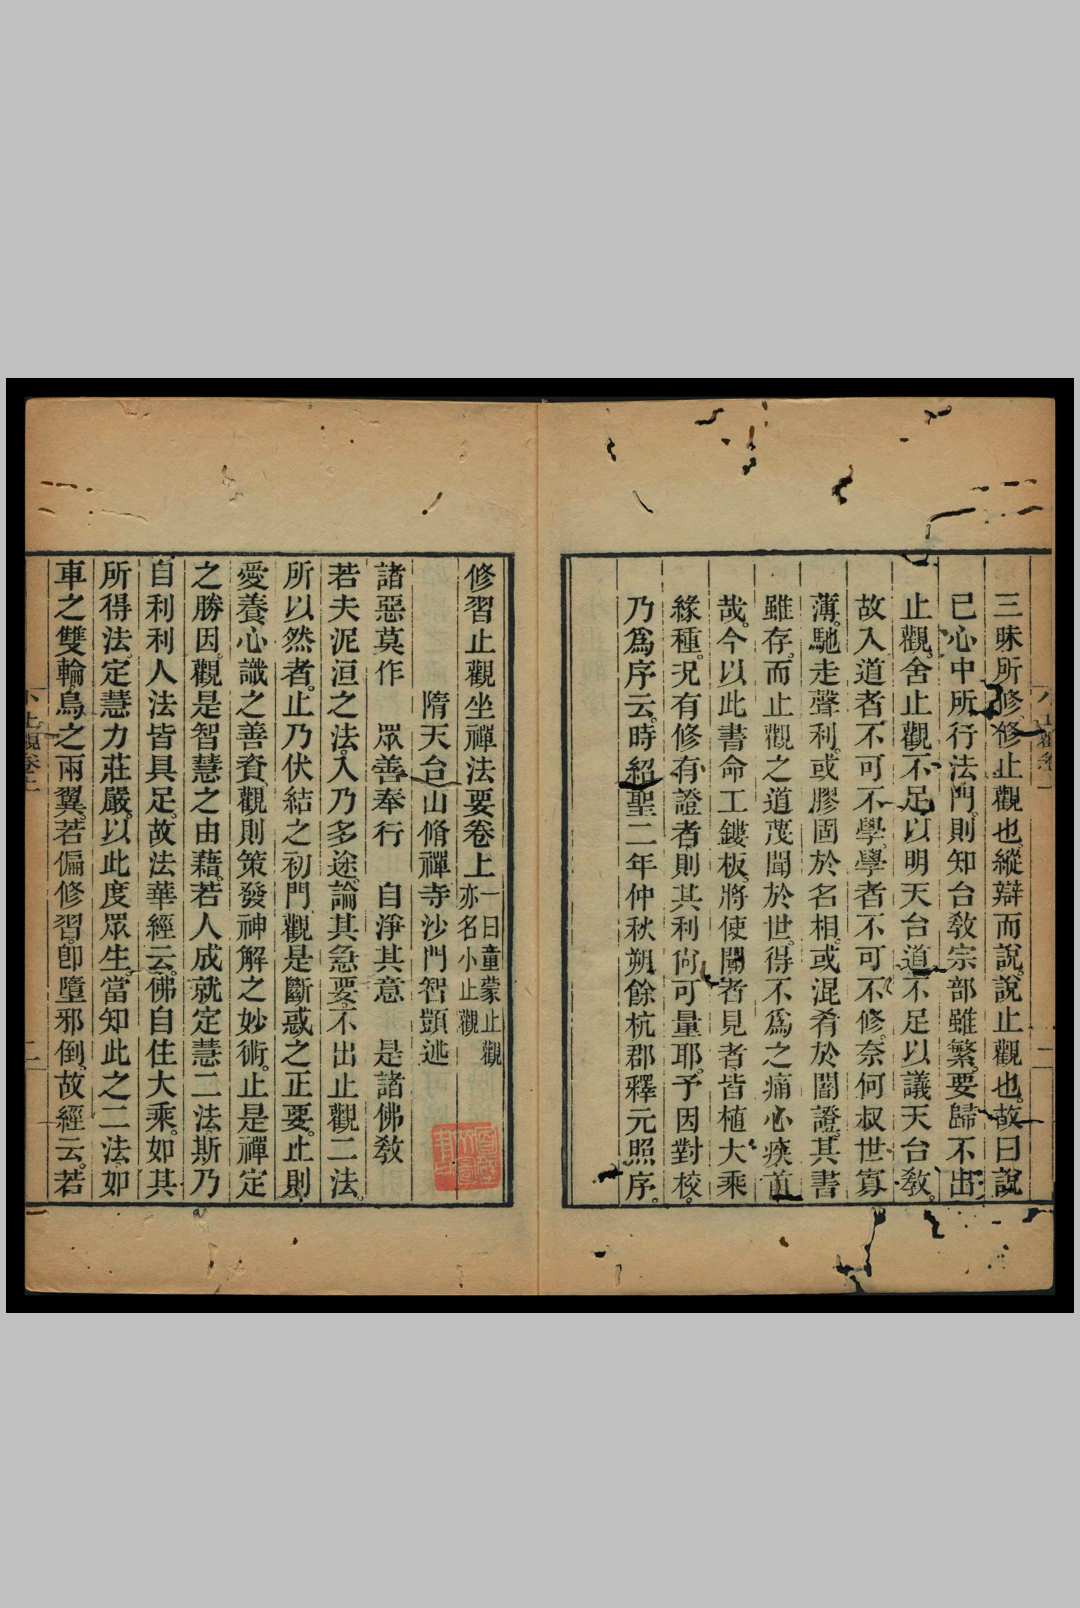 三昧所修修止觀也縱辯而說說止觀也故曰說
己心中所行法門則知台敎宗部雖繁要歸不出
止觀舍止觀不足以明天台道不足以議天台敎
故入道者不可不學學者不可不修奈何叔世寡
薄馳走聲利或膠固於名相或混肴於闇證其書
雖存而止觀之道蔑聞於世得不爲之痛心疾首
哉今以此書命工鏤板將使聞者見者皆植大乘
緣種況有修有證者則其利尙可量耶予因對校
乃爲序云時紹聖二年仲秋朔餘杭郡釋元照序
修習止觀坐禪法要卷上一曰童蒙止觀亦名小止觀
隋天台山脩禪寺沙門智顗述
諸惡莫作　眾善奉行　自淨其意　是諸佛敎
若夫泥洹之法入乃多途論其急要不出止觀二法
所以然者止乃伏結之初門觀是斷惑之正要止則
愛養心識之善資觀則策發神解之妙術止是禪定
之勝因觀是智慧之由藉若人成就定慧二法斯乃
自利利人法皆具足故法華經云佛自住大乘如其
所得法定慧力莊嚴以此度眾生當知此之二法如
車之雙輪鳥之兩翼若偏修習卽墮邪倒故經云若
小止觀卷上
二